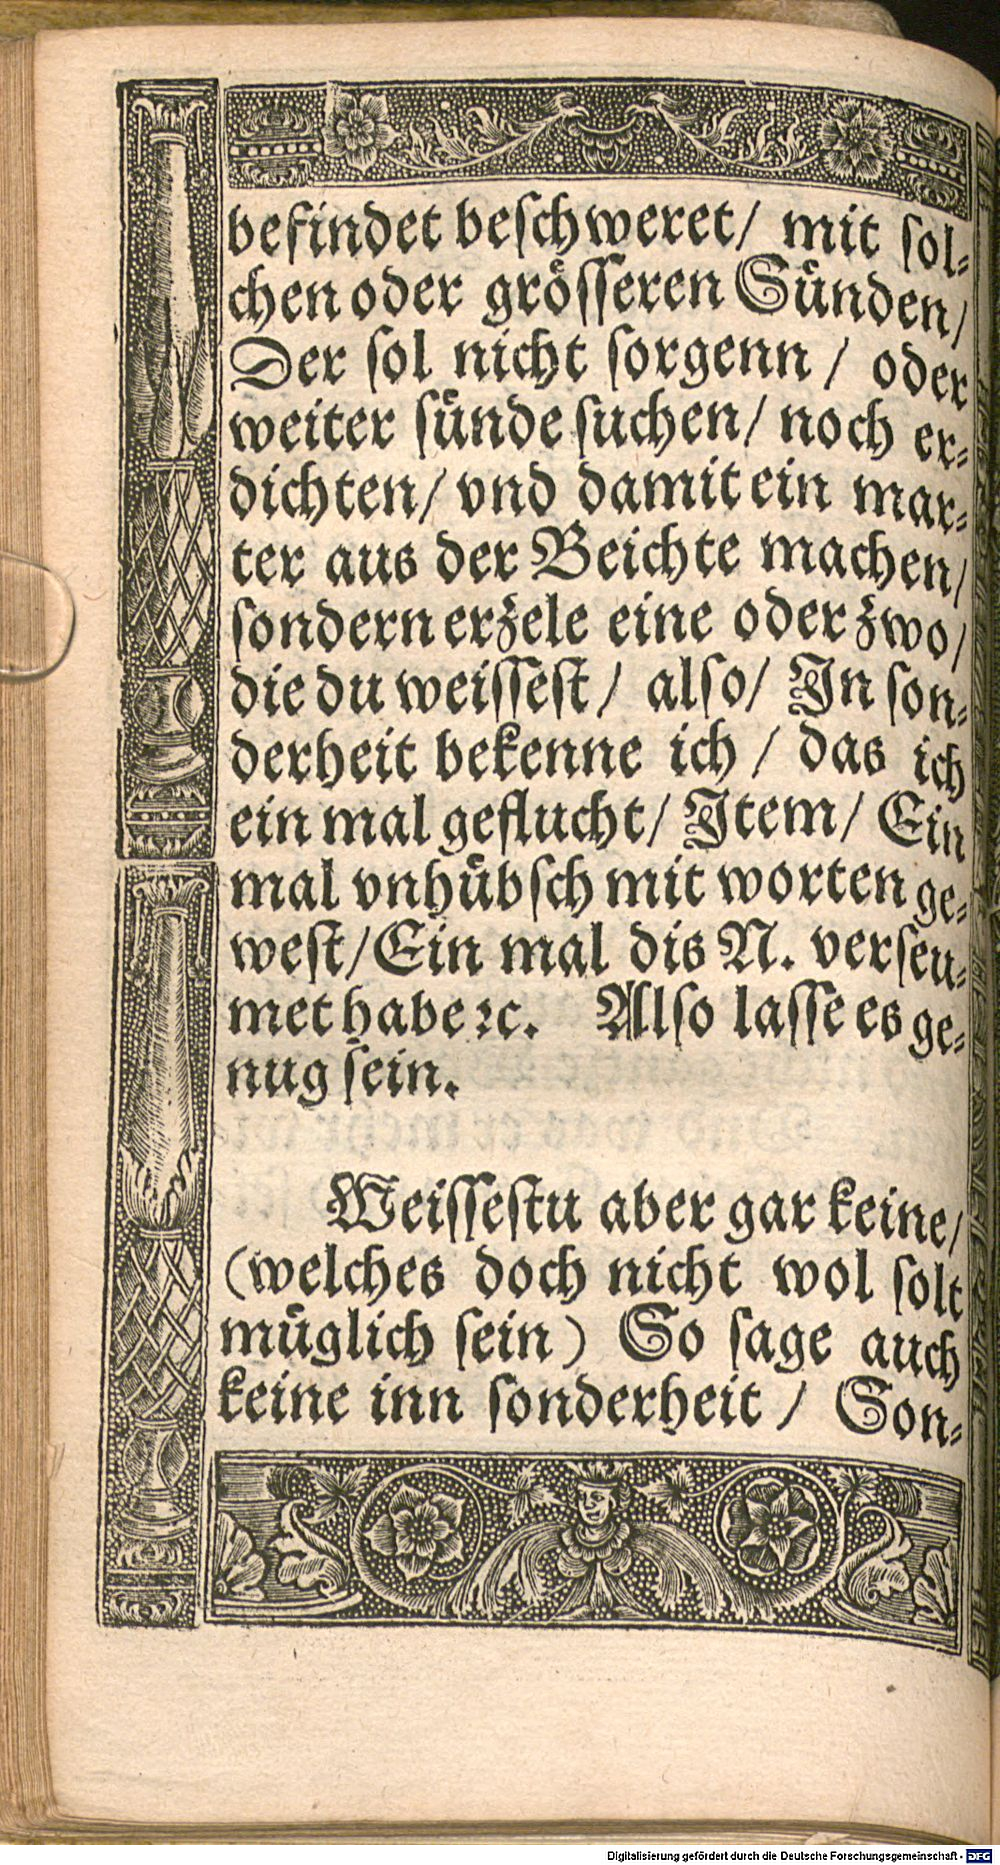 befindet beſchweret/ mit ſol⸗
chen oder gröſſeren Sünden/
Der ſol nicht ſorgenn / oder
weiter ſünde ſuchen/ noch er⸗
dichten/ vnd damit ein mar⸗
ter aus der Beichte machen/
ſondern erzele eine oder zwo/
die du weiſſeſt/ alſo/ In ſon⸗
derheit bekenne ich / das ich
ein mal geflucht/ Item/ Ein
mal vnhübſch mit worten ge⸗
weſt/ Ein mal dis N. verſeu⸗
met habe ꝛc. Alſo laſſe es ge⸗
nug ſein.
Weiſſeſtu aber gar keine/
(welches doch nicht wol ſolt
müglich ſein) So ſage auch
keine inn ſonderheit / Son⸗
Digitalisierung gefördert durch die Deutsche Forschungsgemeinschaft - DFG